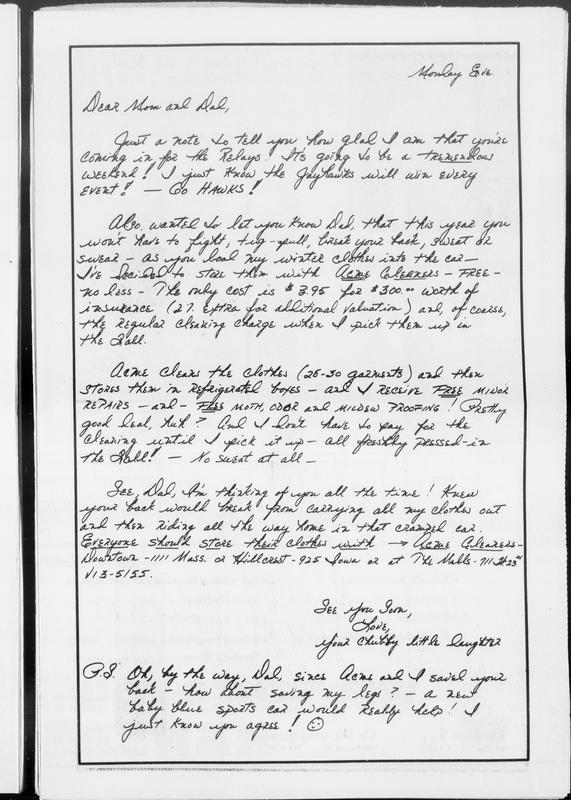 Monday Eve.
Dear Mom and Dad,
Just a note to tell you how glad I am that you're
coming in for the Relays! It's going to be a tremendous
weekend! I just know the Jayhawks will win every
event! — Go HAWKS!
Also, wanted to let you know Dad, that this year you
won't have to fight, tug-pull, break your back, sweat or
swear - as you load my winter clothes into the car -
I've decided to store them with Acme Cleaners - FREE -
no less - The only cost is $3.95 for $300.00 worth of
insurance (2% extra for additional valuation) and, of coarse,
the regular cleaning charge when I pick them up in
the Fall.
Acme cleans the clothes (25-30 garments) and then
stores them in refrigerated boxes - and I receive FREE MINOR
REPAIRS - and - FREE MOTH, ODOR and MILDEW PROOFING! Pretty
good deal, huh? And I don't have to pay for the
cleaning until I pick it up - all freshly pressed - in
the Fall! - No sweat at all -
See, Dad, I'm thinking of you all the time! Knew
your back would break from carrying all my clothes out
and then riding all the way home in that cramped car.
Everyone should store their clothes with → Acme Cleaners -
Downtown - 1111 Mass. or Hillcrest - 925 Iowa or at The Malls - 711 W 23rd
VI3-5155.
See you Soon,
Love,
your chubby little daughter
P.S. Oh, by the way, Dad, since Acme and I saved your
back - how about saving my legs? - a new
baby blue sports car would really help! I
just know you agree! ☺